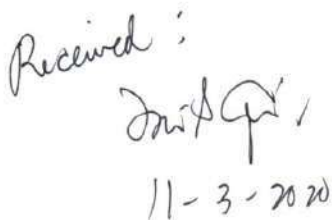 Received :
11-3-2020